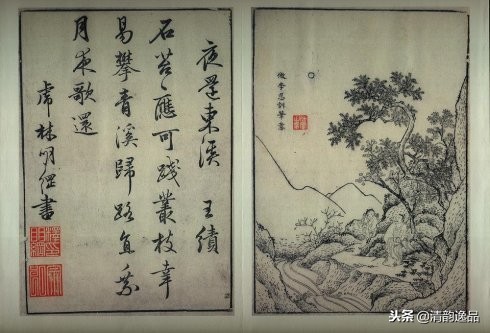 夜還東溪 王績
石苔應可踐叢枝幸
易攀青溪歸路直乘
月夜歌還
虎林明書
倣李思訓筆意
头条 @清韵逸品